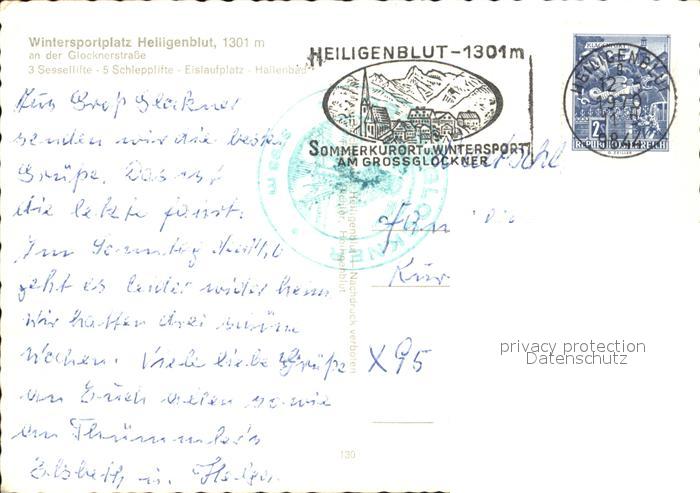 Wintersportplatz Heiligenblut, 1301 m
an der Glocknerstraße
3 Sessellifte - 5 Schlepplifte - Eislaufplatz - Hallenbad
HEILIGENBLUT-1301m
SOMMERKURORT U. WINTERSPORT
AM GROSSGLOCKNER
HEILIGENBLUT
1970
9844
2
REPUBLIK ÖSTERREICH
Vom Groß Glockner
senden wir die besten
Grüße. Das ist
die letzte Fahrt.
Am Sonntag
geht es leider wieder heim
Wir hatten drei schöne
Wochen. Viele liebe Grüße
an Euch allen sowie
an Thümmler's
Elsbeth u. Helga.
Fam
Kur
X95
Heiligenblut
Nachdruck verboten
130
privacy protection
Datenschutz